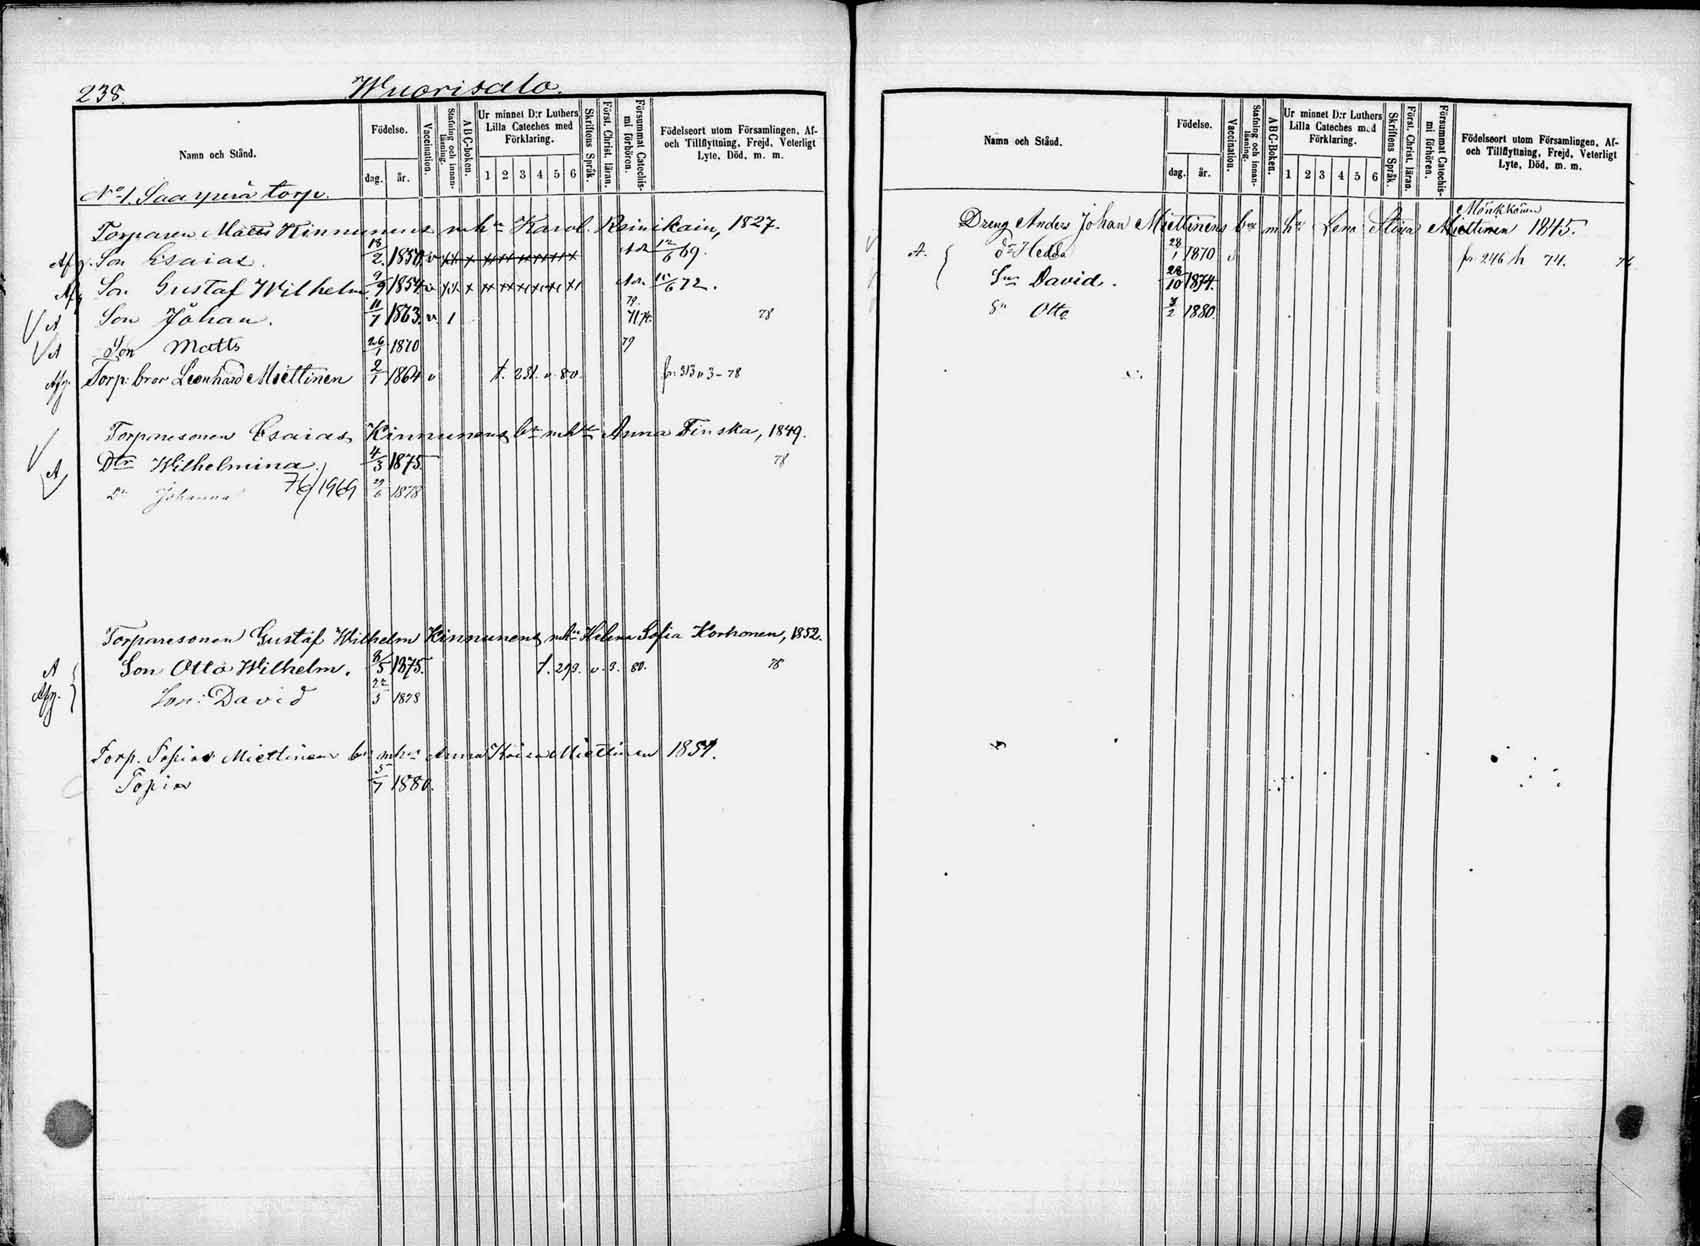 238.
Wuorisalo.
Namn och Stånd.
Födelse.
dag. år.
Vaccination.
Stafning och innanläsning.
A B C-boken.
Ur minnet D:r Luthers Lilla Cateches med Förklaring.
1 2 3 4 5 6
Skriftens Språk.
Först. Christ. läran.
Försummat Catechismi förhören.
Födelseort utom Församlingen, Af- och Tillflyttning, Frejd, Veterligt Lyte, Död, m. m.
No 1. Saayperä torp.
Torparen Matts Kinnunens m hu Karol. 1827.
Son Esaias. 18/2 1850 v 12/6 69.
Son Gustaf Wilhelm 9/9 1854 v 72.
A Son Johan. 11/7 1863 v 1 78
A Son Matts 26/1 1870 79
Torp: bror Leonhard Miettinen 2/1 1864 v t. 231. v. 80. fr 313 v 3 - 78
Torparesonen Esaias Kinnunens bn m hu Anna Finska, 1849.
A Dtr Wilhelmina 4/3 1875 78
Dr Johanna 76/1969 1878
Torparesonen Gustaf Wilhelm Kinnunens m hu Helena Sofia Korhonen, 1852.
A Son Otto Wilhelm. 1875. t. 293. v. 3. 80. 78
Son: David 22/3 1878
Torp. Topias Miettinen bn m hu Anna Kaisa Miettinen 1857.
Topias 5/7 1880.
Namn och Stånd.
Födelse.
dag. år.
Vaccination.
Stafning och innanläsning.
A B C-Boken.
Ur minnet D:r Luthers Lilla Cateches med Förklaring.
1 2 3 4 5 6
Skriftens Språk.
Först. Christ. läran.
Försummat Catechismi förhören.
Födelseort utom Församlingen, Af- och Tillflyttning, Frejd, Veterligt Lyte, Död, m. m.
Mönkkönen
Dreng Anders Johan Miettinens bn m hu Lena Stina Miettinen 1845.
A. dr Hedda 28/1 1870 fr 246 h 74.
Sn David. 28/10 1874.
Sn Otto 1880.